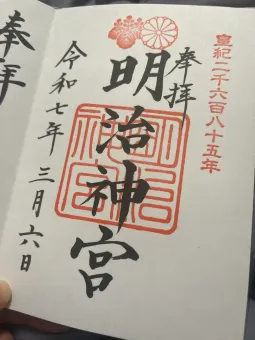 皇紀二千六百八十五年
奉拝
明治神宮
令和七年三月六日
奉拝